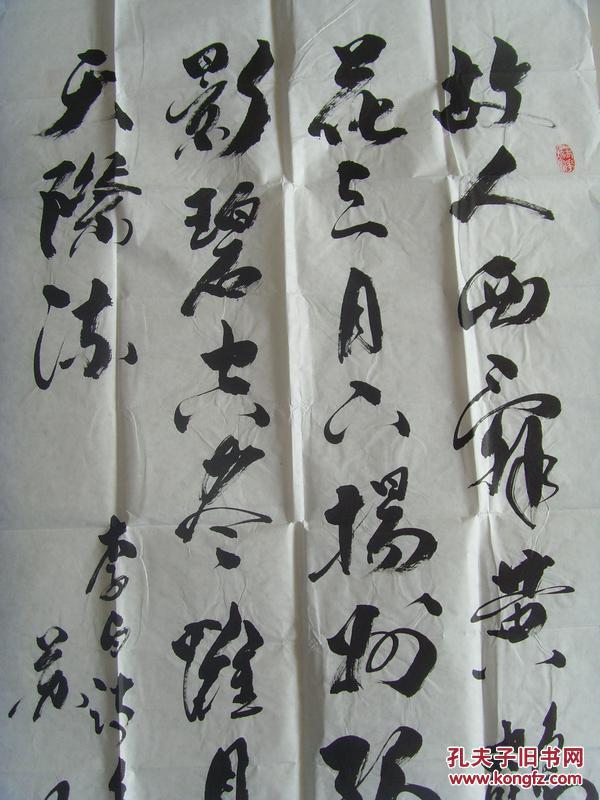 故人西辭黄鶴
花三月下揚州孤
影碧空盡唯見
天際流
李白詩
苏
孔夫子旧书网
www.kongfz.com